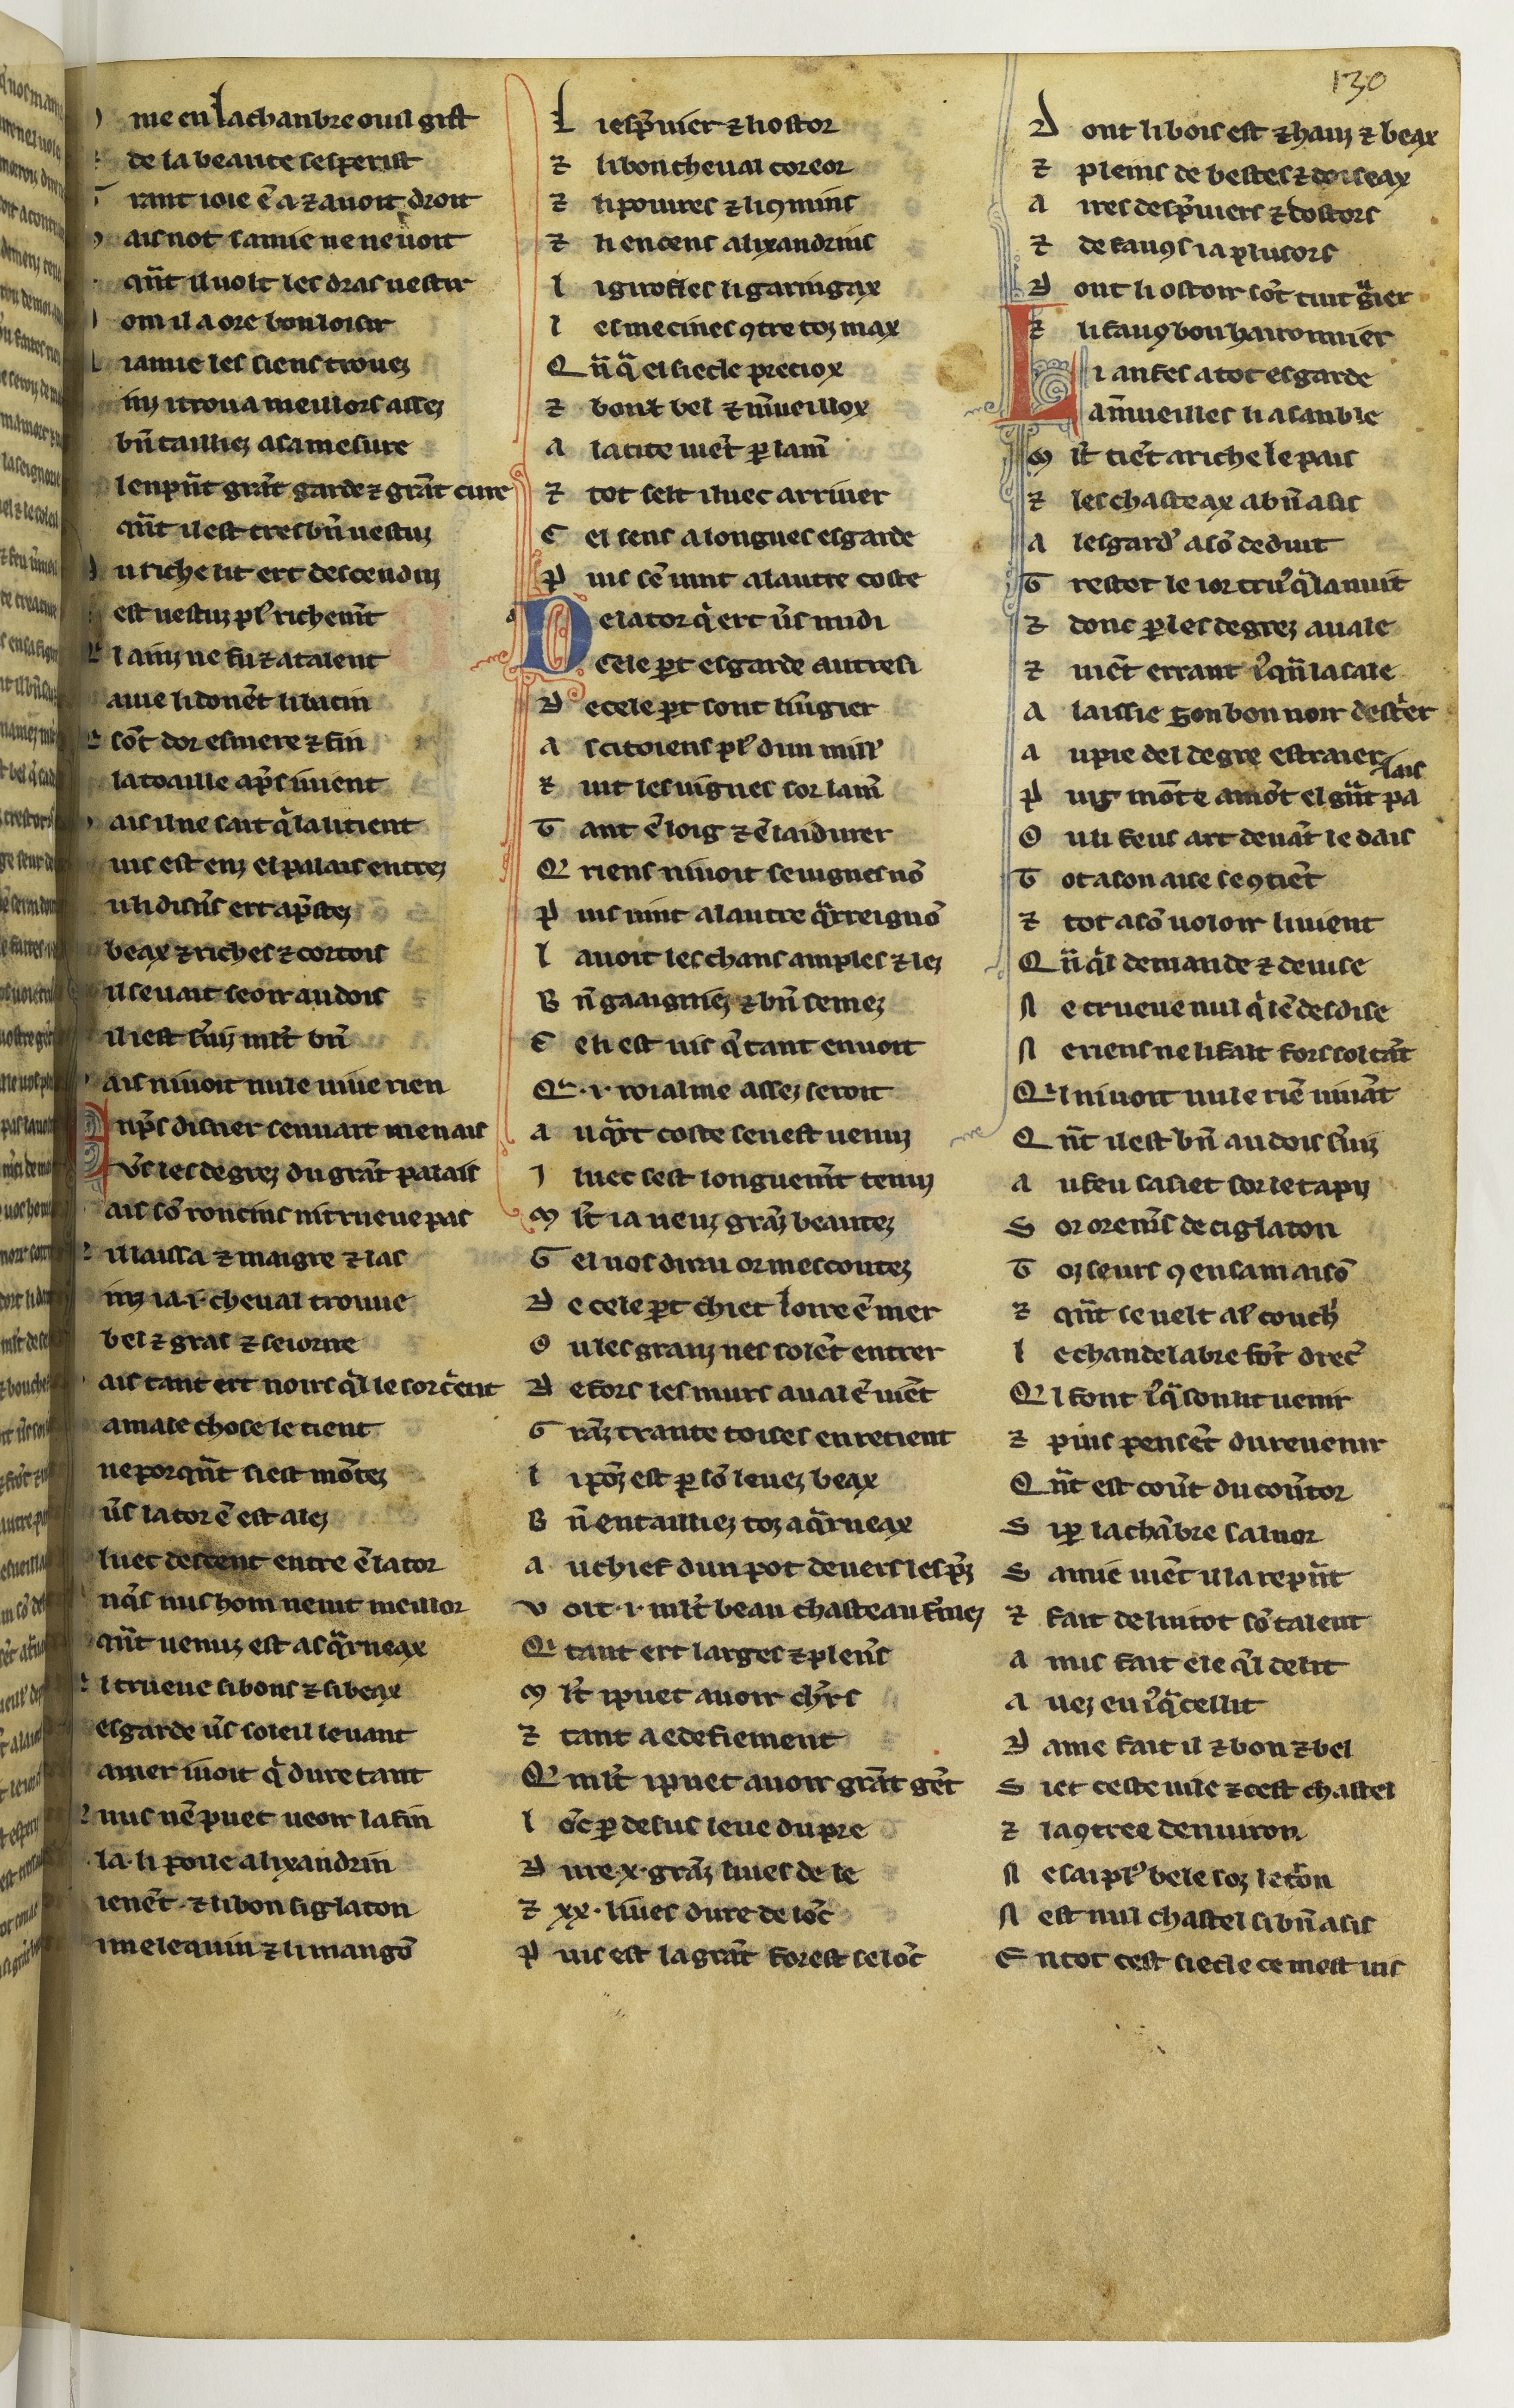 130
me en la chanbre ou il gist
de la beaute sesperist
rant ioie ē a ⁊ auoit droit
ais not samie ne ne uoit
qn̄t il uolt les dras uestir
om il a ore bon loisir
iamie les siens trouez
inz i troua meillors assez
bn̄ tailliez a sa mesure
len pn̄t grāt garde ⁊ grāt cure
qn̄t il est tres bn̄ uestuz
u riche lit ert descenduz
est uestuz pl' richemt̄
l ainz ne fu ⁊ a talent
aiue li donēt li bacin
sōt dor esmere ⁊ fin
la toaille ap̄s i uient
ais il ne sait q̄ la li tient
uis est enz el palais entrez
u li disn̄s ert ap̄stez
beax ⁊ riches ⁊ cortois
il se uait seoir au dois
il i est s̄uiz ml't bn̄
ais ni uoit nule uiue rien
np̄s disner senuait men ais
v̄s les degrez du grāt palais
ais sō roncins ni trueue pas
il laissa ⁊ maigre ⁊ las
inz ia .i. cheual trouue
bel ⁊ gras ⁊ seiorne
ais tant ert noirs q̄l le sorc̄ent
a male chose le tient
ne porqn̄t si est mōtez
ūs la tor ē est alez
luec descent entre ē la tor
nq̄s nus hom ne uit meillor
qn̄t uenuz est as q̄rneax
l trueue si bons ⁊ si beax
esgarde ūs soleil leuant
a mer i uoit q̄ dure tant
nus nē puet ueoir la fin
la li poile alixandrin
ienēt ⁊ li bon siglaton
im elequin ⁊ li mangō
L i esp̄uier ⁊ li ostor
⁊ li bon cheual coreor
⁊ li poiures ⁊ li 9mins
⁊ li encens alixandrins
l i girofles li garingax
l es mecines 9tre toz max
Q n̄ q̄ el siecle preciox
⁊ bon ⁊ bel ⁊ mūeillox
a la cite uiēt p̄ la m̄
⁊ tot selt iluec arriuer
C el sens a longues esgarde
P uis sē uint a lautre coste
D e la tor q̄ ert ūs midi
D e cele p̄t esgarde autresi
D e cele p̄t sont li ūgier
a s citoiens pl' dun mill'
⁊ uit les uignes sor la m̄
T ant ē loig ⁊ ē lai durer
Q riens ni uoit se uignes nō
P uis uint a lautre q̄rreignō
l a uoit les chans amples ⁊ lez
B n̄ gaaigniez ⁊ bn̄ semez
C e li est uis q̄ tant en uoit
Q' .i. roialme assez seroit
a u q̄rt coste sen est uenuz
I luec sest longuemt̄ tenuz
M l't i a ueuz grāz beautez
G el uos dirai or mescoutez
D e cele p̄t chiet loire ē mer
O u les granz nes solēt entrer
D efors les murs aual ē uiēt
G rāz trante toises en retient
l i pōz est p̄ sō leuez beax
B n̄ entailliez toz a q̄rneax
a u chief dun pot deuers les p̄z
V oit .i. ml't beau chasteau fm̄ez
Q' tant ert larges ⁊ plen̄s
M l't i puet auoir ch'rs
⁊ tant a edefiement
Q' ml't i puet auoir grāt gēt
l ōc p̄ desus leue du pre
D ure .x. grāz liues de le
⁊ xx. liues dure de lōc
P uis est la grāt forest selōc
D ont li bois est ⁊ hauz ⁊ beax
⁊ pleins de bestes ⁊ doiseax
a ires desp̄uiers ⁊ dostors
⁊ de fauqs ia plusors
D ont li ostoir sōt tuit ḡier
⁊ li fauq bon haironnier
L i anfes a tot esgarde
a mūeilles li a sanble
M l't tiēt a riche le pais
⁊ les chasteax a bn̄ asis
a lesgard' a sō deduit
T restot le ior tr̄u q̄ la nuit
⁊ donc p̄ les degrez auale
⁊ uiēt errant i'q̄n la sale
a laissie son bon noir dest̄er
a u pie del degre estraier
P uis mōte amōt el gn̄t palais
O u li feus art deuāt le dais
T ot a son aise se 9tiēt
⁊ tot a sō uoloir li uient
Q n̄ q̄l demande ⁊ deuise
N e trueue nul q̄ lē desdise
N e riens ne li fait fors soltāt
Q'l ni uoit nule riē uiuāt
Q n̄t il est bn̄ au dois s̄uiz
a u feu sasiet sor le tapiz
S or orem̄s de ciglaton
T oz seurs 9 en sa maisō
⁊ qn̄t se uelt al' couch'
l e chandelabre sōt drec'
Q'l font i'q̄ son lit uenir
⁊ puis pensēt du reuenir
Q n̄t est cou̅t du cou̅tor
S i p̄ la chābre sa luor
S amie uiēt il la repn̄t
⁊ fait de li tot sō talent
a mis fait ele q̄l delit
a uez eu i'q̄ cellit
D ame fait il ⁊ bon ⁊ bel
S iet ceste uile ⁊ cest chastel
⁊ la 9tree denuiron
N e sai pl' bele soz le trōn
N est nul chastel si bn̄ asis
E n tot cest siecle ce mest uis